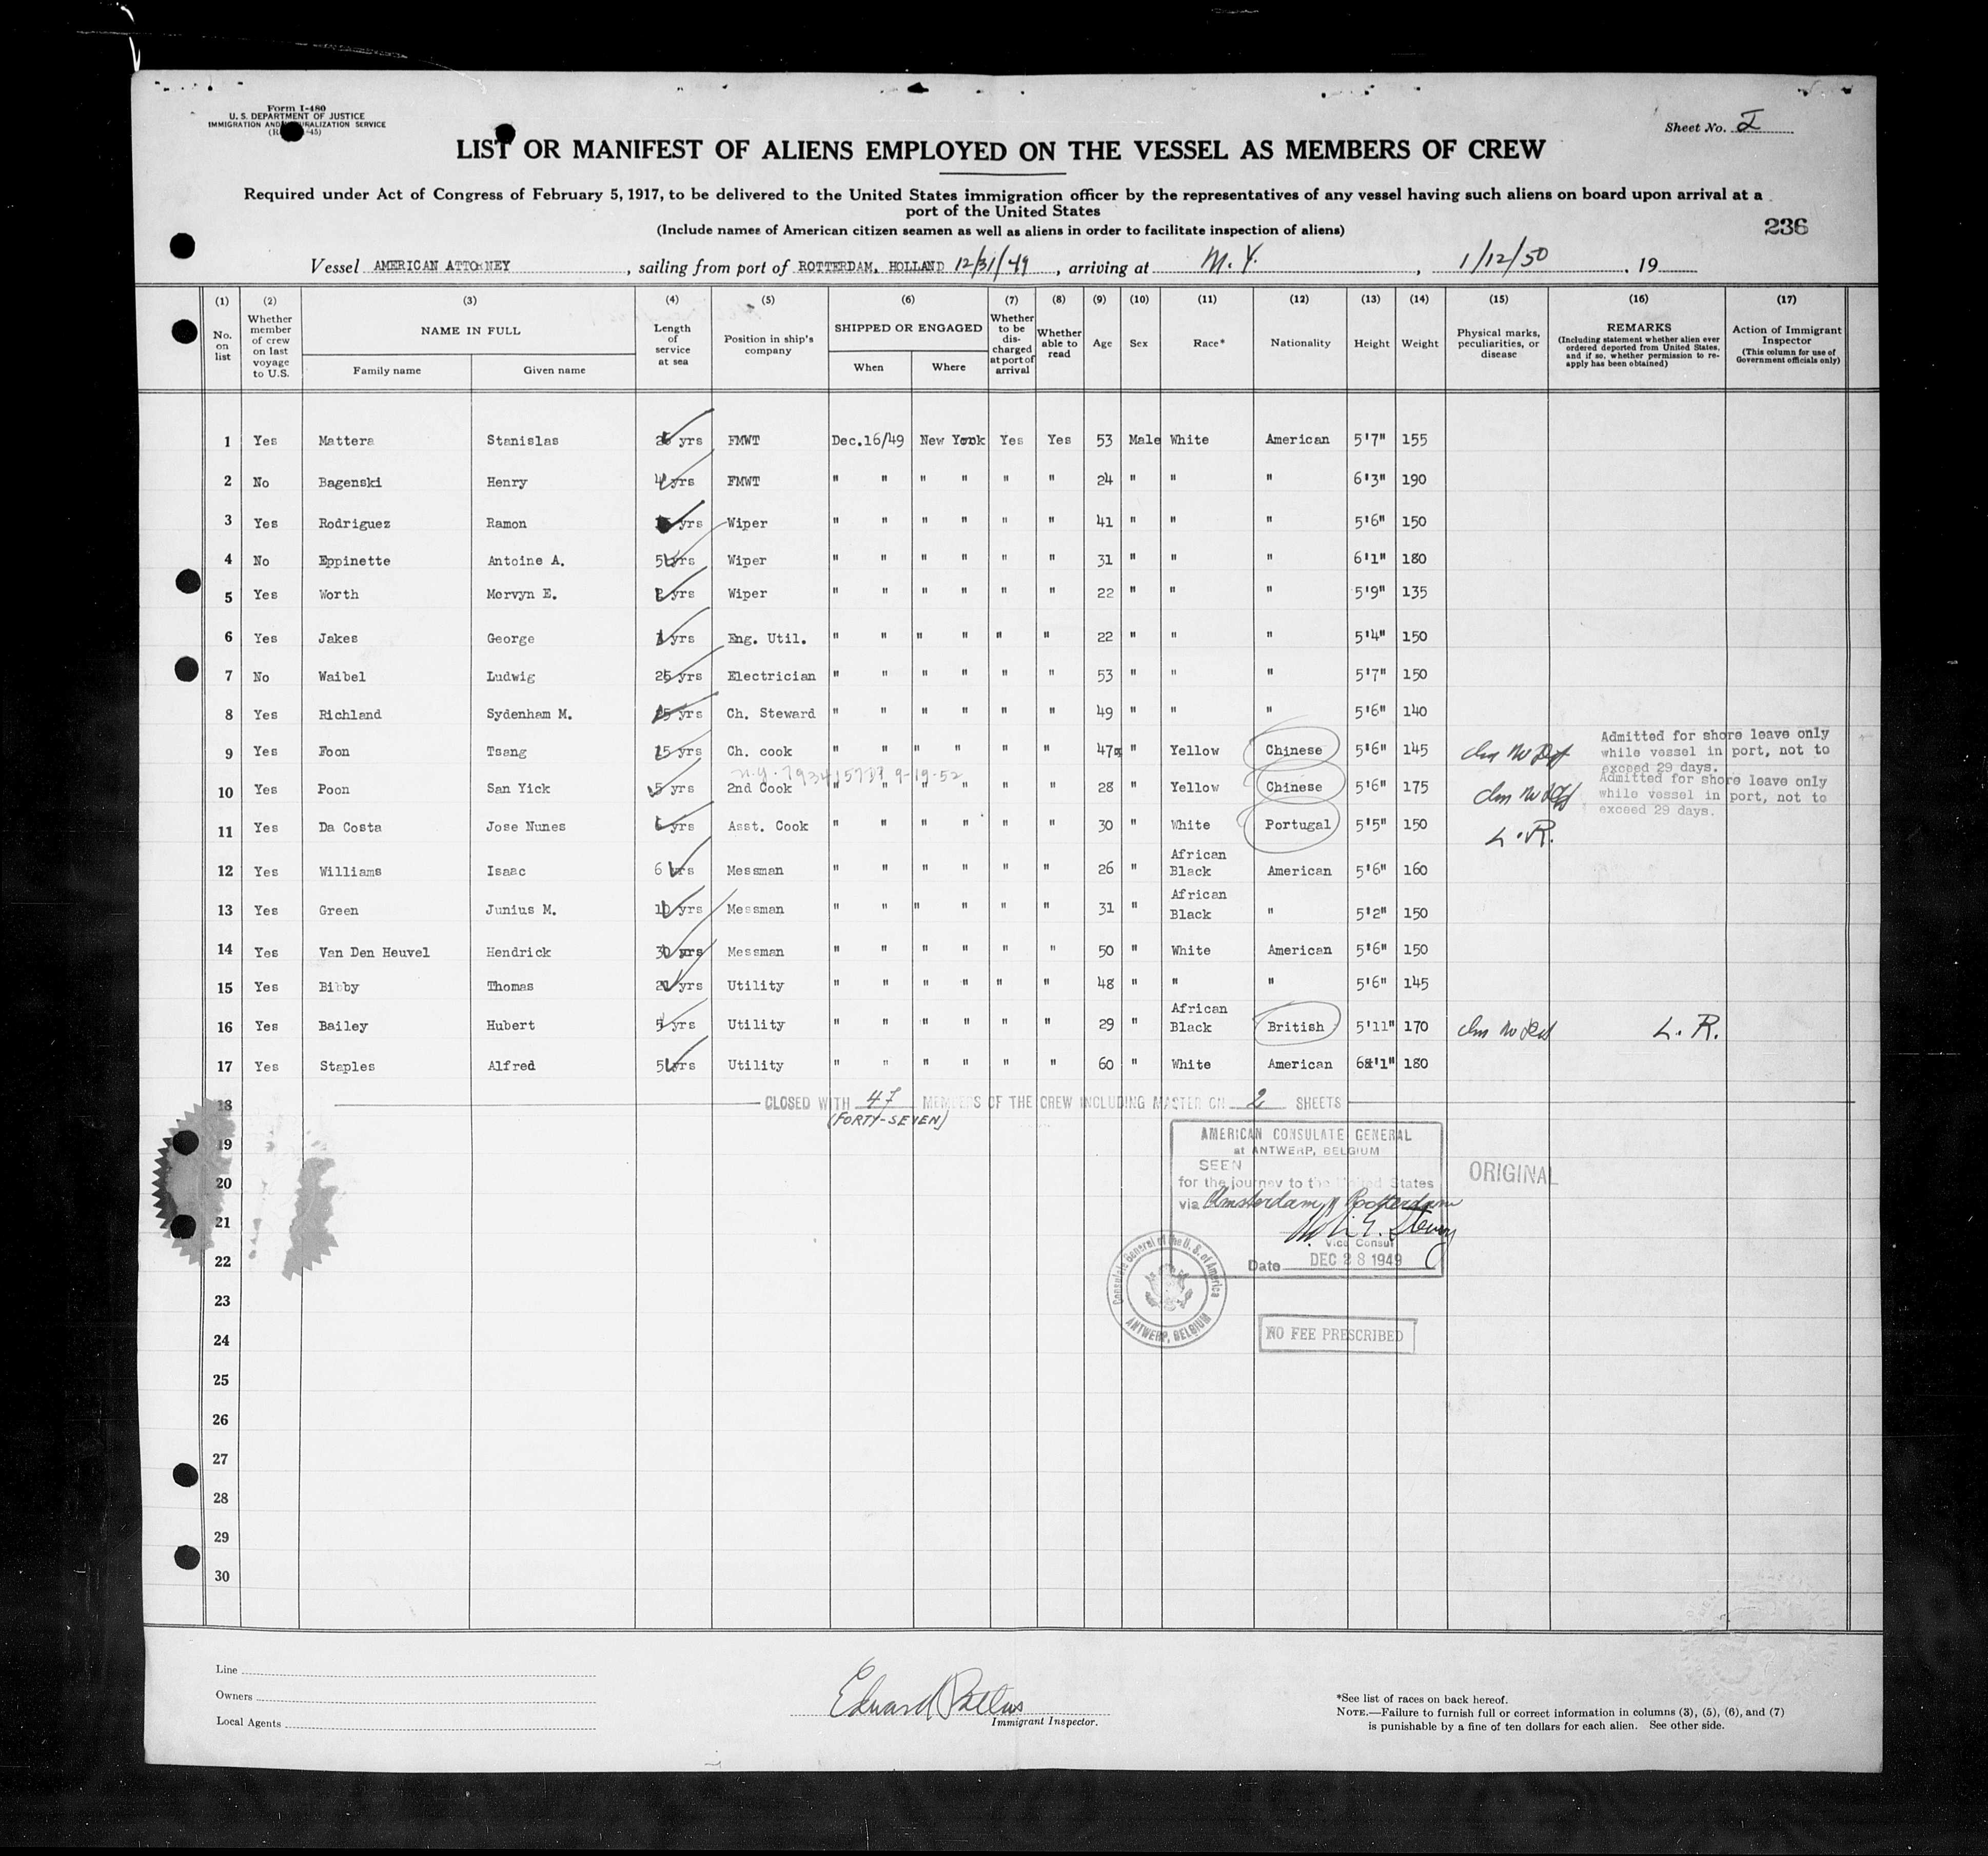 Form I-480
U. S. DEPARTMENT OF JUSTICE
IMMIGRATION AND NATURALIZATION SERVICE
Sheet No. I
LIST OR MANIFEST OF ALIENS EMPLOYED ON THE VESSEL AS MEMBERS OF CREW
Required under Act of Congress of February 5, 1917, to be delivered to the United States immigration officer by the representatives of any vessel having such aliens on board upon arrival at a
port of the United States
(Include names of American citizen seamen as well as aliens in order to facilitate inspection of aliens)
236
Vessel AMERICAN ATTORNEY, sailing from port of ROTTERDAM, HOLLAND 12/31/49, arriving at N. Y., 1/12/50, 19
(1) No. on list
(2) Whether member of crew on last voyage to U.S.
(3) NAME IN FULL Family name Given name
(4) Length of service at sea
(5) Position in ship's company
(6) SHIPPED OR ENGAGED When Where
(7) Whether to be discharged at port of arrival
(8) Whether able to read
(9) Age
(10) Sex
(11) Race*
(12) Nationality
(13) Height
(14) Weight
(15) Physical marks, peculiarities, or disease
(16) REMARKS (Including statement whether alien ever ordered deported from United States, and if so, whether permission to re-apply has been obtained)
(17) Action of Immigrant Inspector (This column for use of Government officials only)
1 Yes Mattera Stanislas yrs FMWT Dec.16/49 New York Yes Yes 53 Male White American 5'7" 155
2 No Bagenski Henry 4 yrs FMWT " " " " " " 24 " " " 6'3" 190
3 Yes Rodriguez Ramon yrs Wiper " " " " " " 41 " " " 5'6" 150
4 No Eppinette Antoine A. 5 yrs Wiper " " " " " " 31 " " " 6'1" 180
5 Yes Worth Mervyn E. yrs Wiper " " " " " " 22 " " " 5'9" 135
6 Yes Jakes George yrs Eng. Util. " " " " " " 22 " " " 5'4" 150
7 No Waibel Ludwig 25 yrs Electrician " " " " " " 53 " " " 5'7" 150
8 Yes Richland Sydenham M. yrs Ch. Steward " " " " " " 49 " " " 5'6" 140
9 Yes Foon Tsang 15 yrs Ch. cook " " " " " " 47 " Yellow Chinese 5'6" 145 Admitted for shore leave only while vessel in port, not to exceed 29 days.
9-19-52
10 Yes Poon San Yick 5 yrs 2nd Cook " " " " " " 28 " Yellow Chinese 5'6" 175 Admitted for shore leave only while vessel in port, not to exceed 29 days.
11 Yes Da Costa Jose Nunes 6 yrs Asst. Cook " " " " " " 30 " White Portugal 5'5" 150 L.R.
12 Yes Williams Isaac 6 yrs Messman " " " " " " 26 " African Black American 5'6" 160
13 Yes Green Junius M. 10 yrs Messman " " " " " " 31 " African Black " 5'2" 150
14 Yes Van Den Heuvel Hendrick 30 yrs Messman " " " " " " 50 " White American 5'6" 150
15 Yes Bibby Thomas yrs Utility " " " " " " 48 " " " 5'6" 145
16 Yes Bailey Hubert 5 yrs Utility " " " " " " 29 " African Black British 5'11" 170 L. R.
17 Yes Staples Alfred 5 yrs Utility " " " " " " 60 " White American 6'1" 180
18 CLOSED WITH 47 MEMBERS OF THE CREW INCLUDING MASTER ON 2 SHEETS
(FORTY-SEVEN)
19
20
21
22
23
24
25
26
27
28
29
30
AMERICAN CONSULATE GENERAL
at ANTWERP, BELGIUM
SEEN
for the journey to the United States
via Amsterdam, Rotterdam
Vice Consul
Date DEC 28 1949
ORIGINAL
Consulate General of the U. S. of America
ANTWERP, BELGIUM
NO FEE PRESCRIBED
Line
Owners
Local Agents
Edward
Immigrant Inspector.
*See list of races on back hereof.
NOTE.—Failure to furnish full or correct information in columns (3), (5), (6), and (7)
is punishable by a fine of ten dollars for each alien. See other side.